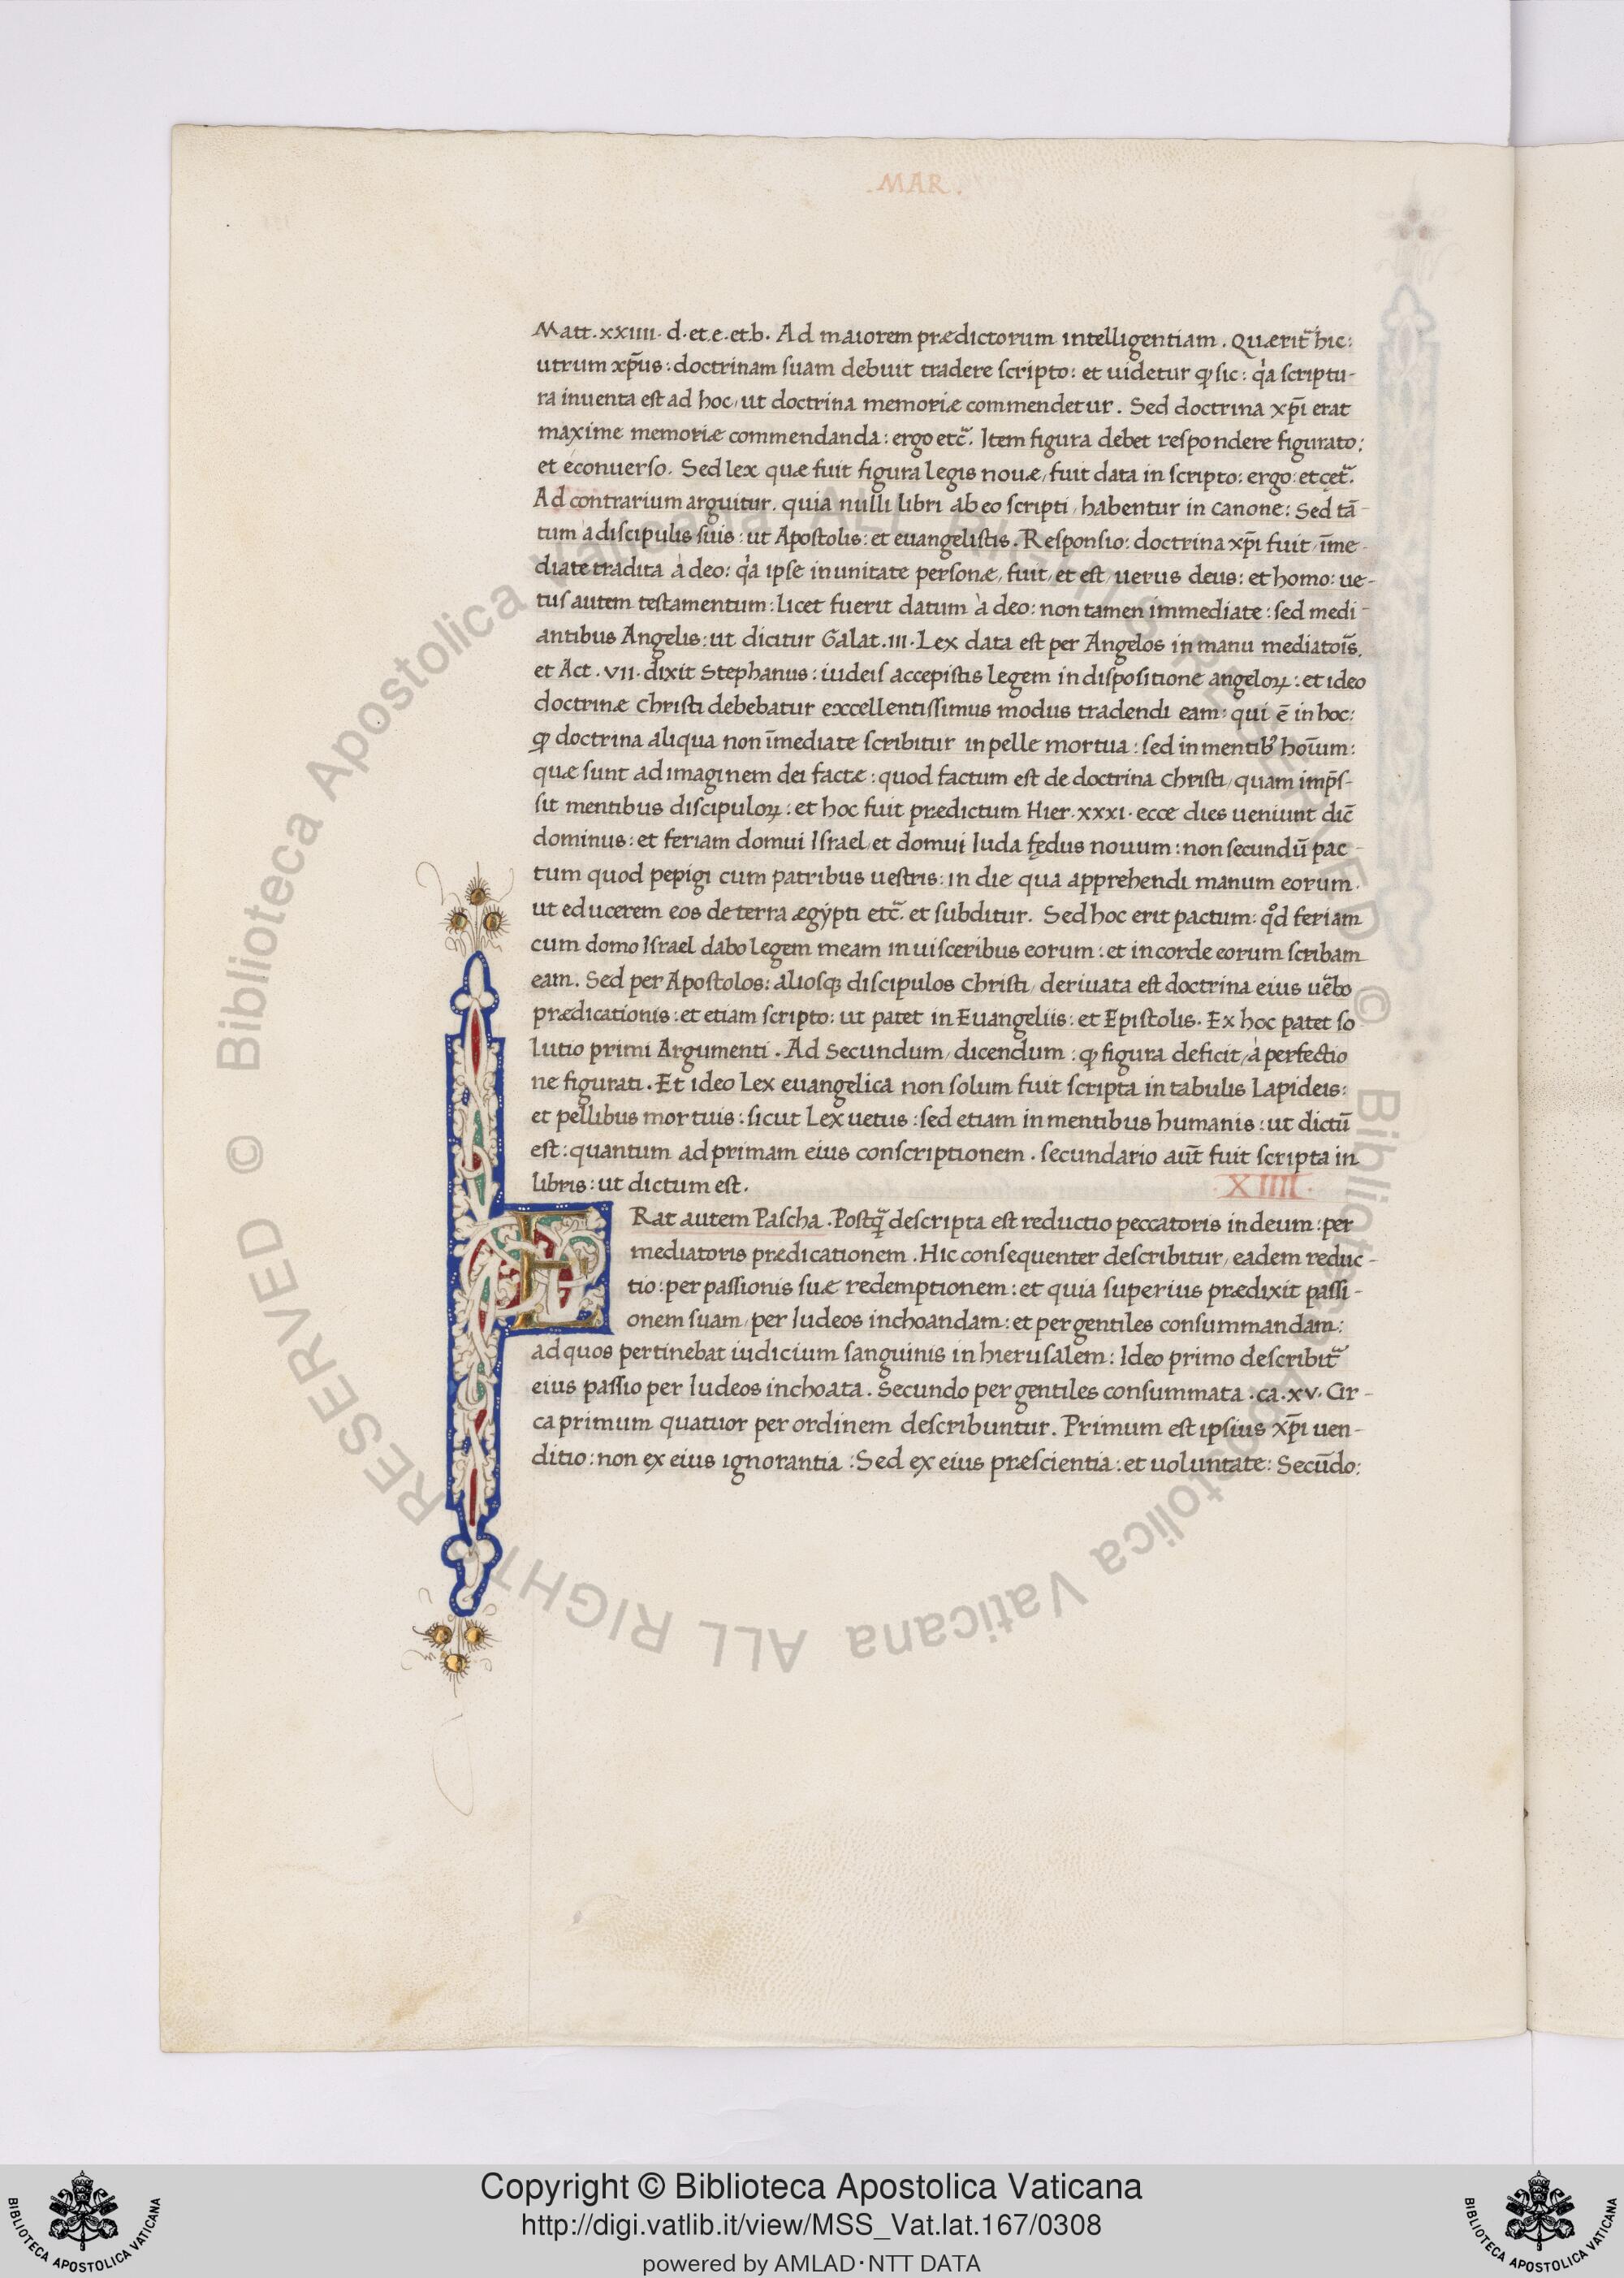 .MAR.
Matt.xxiiii. d.et.e.et.b. Ad maiorem prædictorum intelligentiam. Quærit᷑ hic:
utrum xp̄us: doctrinam suam debuit tradere scripto: et uidetur ꝙ sic: qͥa scriptu-
ra inuenta est ad hoc, ut doctrina memoriæ commendetur. Sed doctrina xp̄i erat
maxime memoriæ commendanda: ergo etc᷑. Item figura debet respondere figurato:
et éconuerso. Sed lex quæ fuit figura legis nouæ, fuit data in scripto: ergo: et cęt᷑.
Ad contrarium arguitur, quia nulli libri ab eo scripti, habentur in canone: Sed tā-
tum à discipulis suis: ut Apostolis: et euangelistis. Responsio: doctrina xp̄i fuit, īme-
diate tradita à deo: qͥa ipse in unitate personæ, fuit, et est, uerus deus: et homo: ue-
tus autem testamentum: licet fuerit datum à deo: non tamen immediate: sed medi-
antibus Angelis: ut dicitur Galat.iii. Lex data est per Angelos in manu mediator̄s.
et Act.vii. dixit Stephanus: iudeis accepistis legem in dispositione angeloꝝ: et ideo
doctrinæ christi debebatur exccellentissimus modus tradendi eam: qui ē in hoc:
ꝙ doctrina aliqua non īmediate scribitur in pelle mortua: sed in mentibꝰ hoīum:
quæ sunt ad imaginem dei factæ: quod factum est de doctrina christi, quam imp̄s-
sit mentibus discipuloꝝ: et hoc fuit prædictum Hier.xxxi. ecce dies ueniunt dic̄
dominus: et feriam domui Israel, et domui Iuda fędus nouum: non secundū pac-
tum quod pepigi cum patribus uestris: in die qua apprehendi manum eorum.
ut educerem eos de terra ægypti etc᷑. et subditur. Sed hoc erit pactum: qͦd feriam
cum domo Israel dabo legem meam in uisceribus eorum: et in corde eorum scribam
eam. Sed per Apostolos: aliosqꝫ discipulos christi, deriuata est doctrina eius ue᷑bo
prædicationis: et etiam scripto: ut patet in Euangeliis: et Epistolis. Ex hoc patet so
lutio primi Argumenti. Ad Secundum, dicendum: ꝙ figura deficit, à perfectio
ne figurati. Et ideo Lex euangelica non solum fuit scripta in tabulis Lapideis:
et pellibus mortuis: sicut Lex uetus: sed etiam in mentibus humanis: ut dictū
est: quantum ad primam eius conscriptionem. secundario aut̄ fuit scripta in
libris: ut dictum est. .XIIII.
ERat autem Pascha. Postq̄ descripta est reductio peccatoris in deum: per
mediatoris prædicationem. Hic consequenter describitur, eadem reduc-
tio: per passionis suæ redemptionem: et quia superius prædixit passi-
onem suam, per Iudeos inchoandam: et per gentiles consummandam:
ad quos pertinebat iudicium sanguinis in hierusalem: Ideo primo describit᷑
eius passio per Iudeos inchoata. Secundo per gentiles consummata.ca.xv. Cir-
ca primum quatuor per ordinem describuntur. Primum est ipsius xp̄i uen-
ditio: non ex eius ignorantia: Sed ex eius præscientia: et uoluntate: Secūdo:
© Biblioteca Apostolica Vaticana ALL RIGHTS RESERVED © Biblioteca Apostolica Vaticana ALL RIGHTS RESERVED
BIBLIOTECA APOSTOLICA VATICANA
Copyright © Biblioteca Apostolica Vaticana
http://digi.vatlib.it/view/MSS_Vat.lat.167/0308
powered by AMLAD·NTT DATA
BIBLIOTECA APOSTOLICA VATICANA